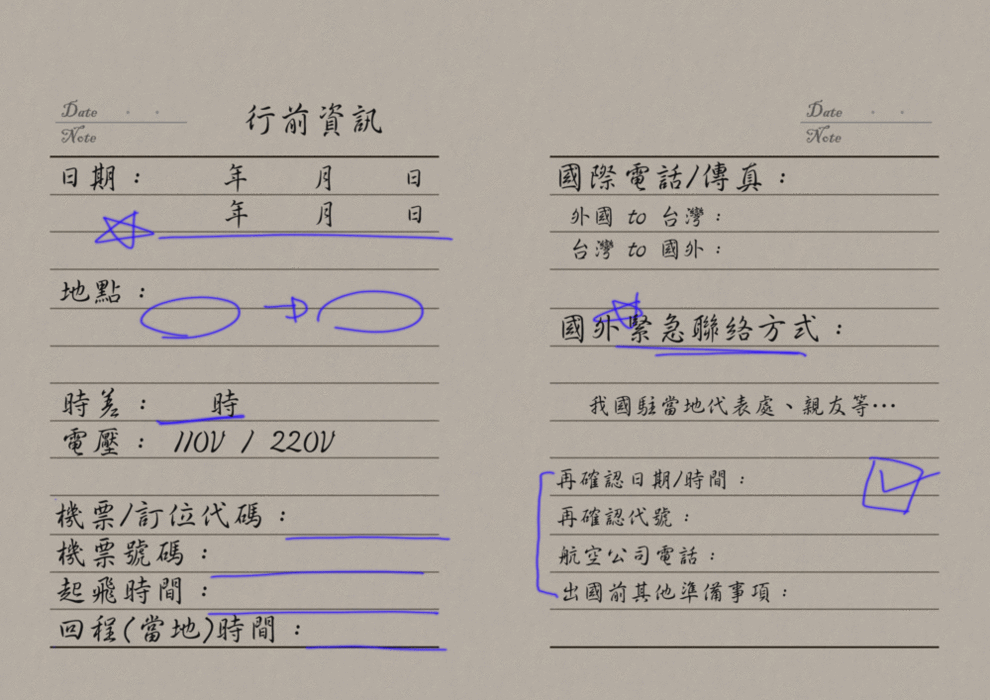 Date · ·
Note
行前資訊
日期： 年 月 日
年 月 日
地點：
時差： 時
電壓： 110V / 220V
機票/訂位代碼：
機票號碼：
起飛時間：
回程(當地)時間：
Date · ·
Note
國際電話/傳真：
外國 to 台灣：
台灣 to 國外：
國外緊急聯絡方式：
我國駐當地代表處、親友等…
再確認日期/時間：
再確認代號：
航空公司電話：
出國前其他準備事項：